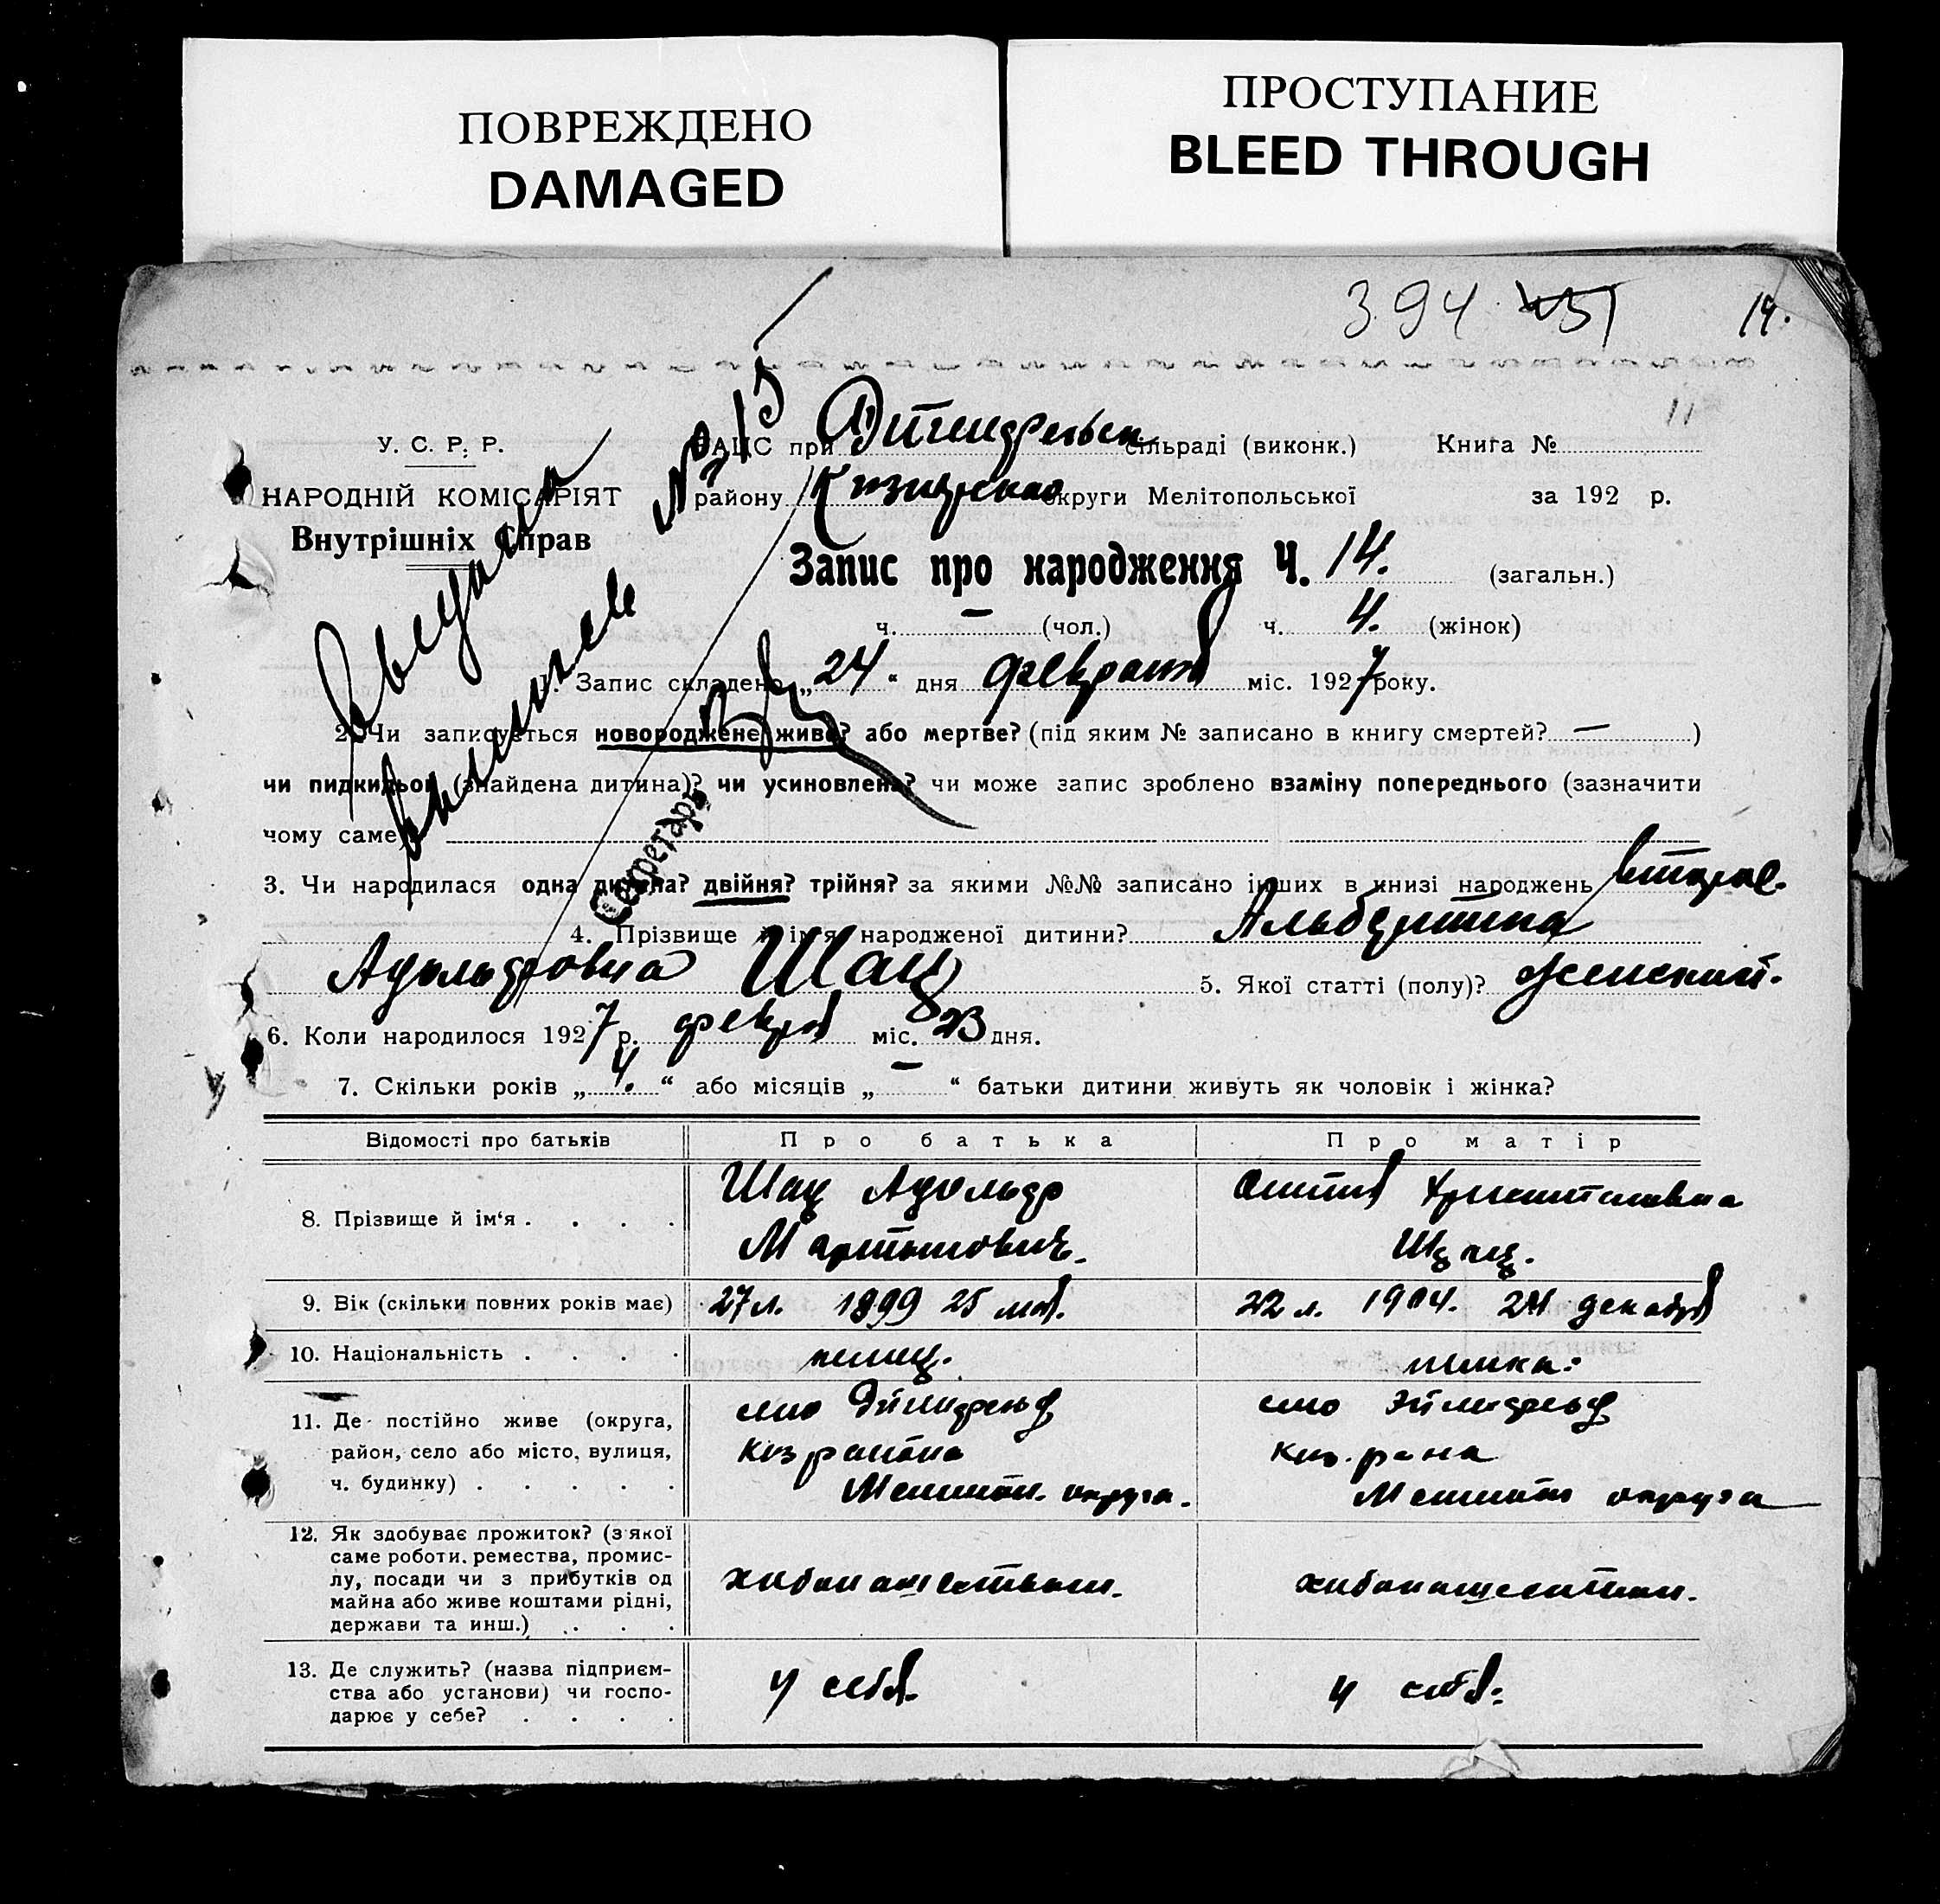 ПОВРЕЖДЕНО
DAMAGED
ПРОСТУПАНИЕ
BLEED THROUGH
394
14.
11
У. С. Р. Р.
НАРОДНІЙ КОМІСАРІЯТ
Внутрішніх Справ
№ 215
ЗАЦС при сільраді (виконк.) Книга №
району округи Мелітопольської за 192 р.
Запис про народження Ч. 14. (загальн.)
ч. — (чол.) ч. 4. (жінок)
1. Запис складено „24“ дня февраля міс. 1927 року.
2. Чи записується новороджене живе? або мертве? (під яким № записано в книгу смертей? — )
чи пидкидьок (знайдена дитина)? чи усиновлена? чи може запис зроблено взаміну попереднього (зазначити
чому саме)
Секретарь
3. Чи народилася одна дитина? двійня? трійня? за якими №№ записано інших в книзі народжень второе.
4. Прізвище й ім'я народженої дитини? Альбертина
Адольфовна Шац 5. Якої статті (полу)? женский.
6. Коли народилося 1927 р. февраля міс. 23 дня.
7. Скільки років „4.“ або місяців „—“ батьки дитини живуть як чоловік і жінка?
Відомості про батьків Про батька Про матір
8. Прізвище й ім'я . . . . Шац Адольф Христиановна
Мартынович. Шац.
9. Вік (скільки повних років має) 27 л. 1899 25 22 л. 1904. 24 декабря
10. Національність . . . . немец. немка.
11. Де постійно живе (округа, село село
район, село або місто, вулиця, района
ч. будинку) . . . . . Мелитоп. округа. Мелитоп округа
12. Як здобуває прожиток? (з якої
саме роботи, ремества, промис-
лу, посади чи з прибутків од хлебопашеством. хлебопашеством.
майна або живе коштами рідні,
держави та инш.) . . . .
13. Де служить? (назва підприєм-
ства або установи) чи госпо- у себя. у себя.
дарює у себе? . . . .